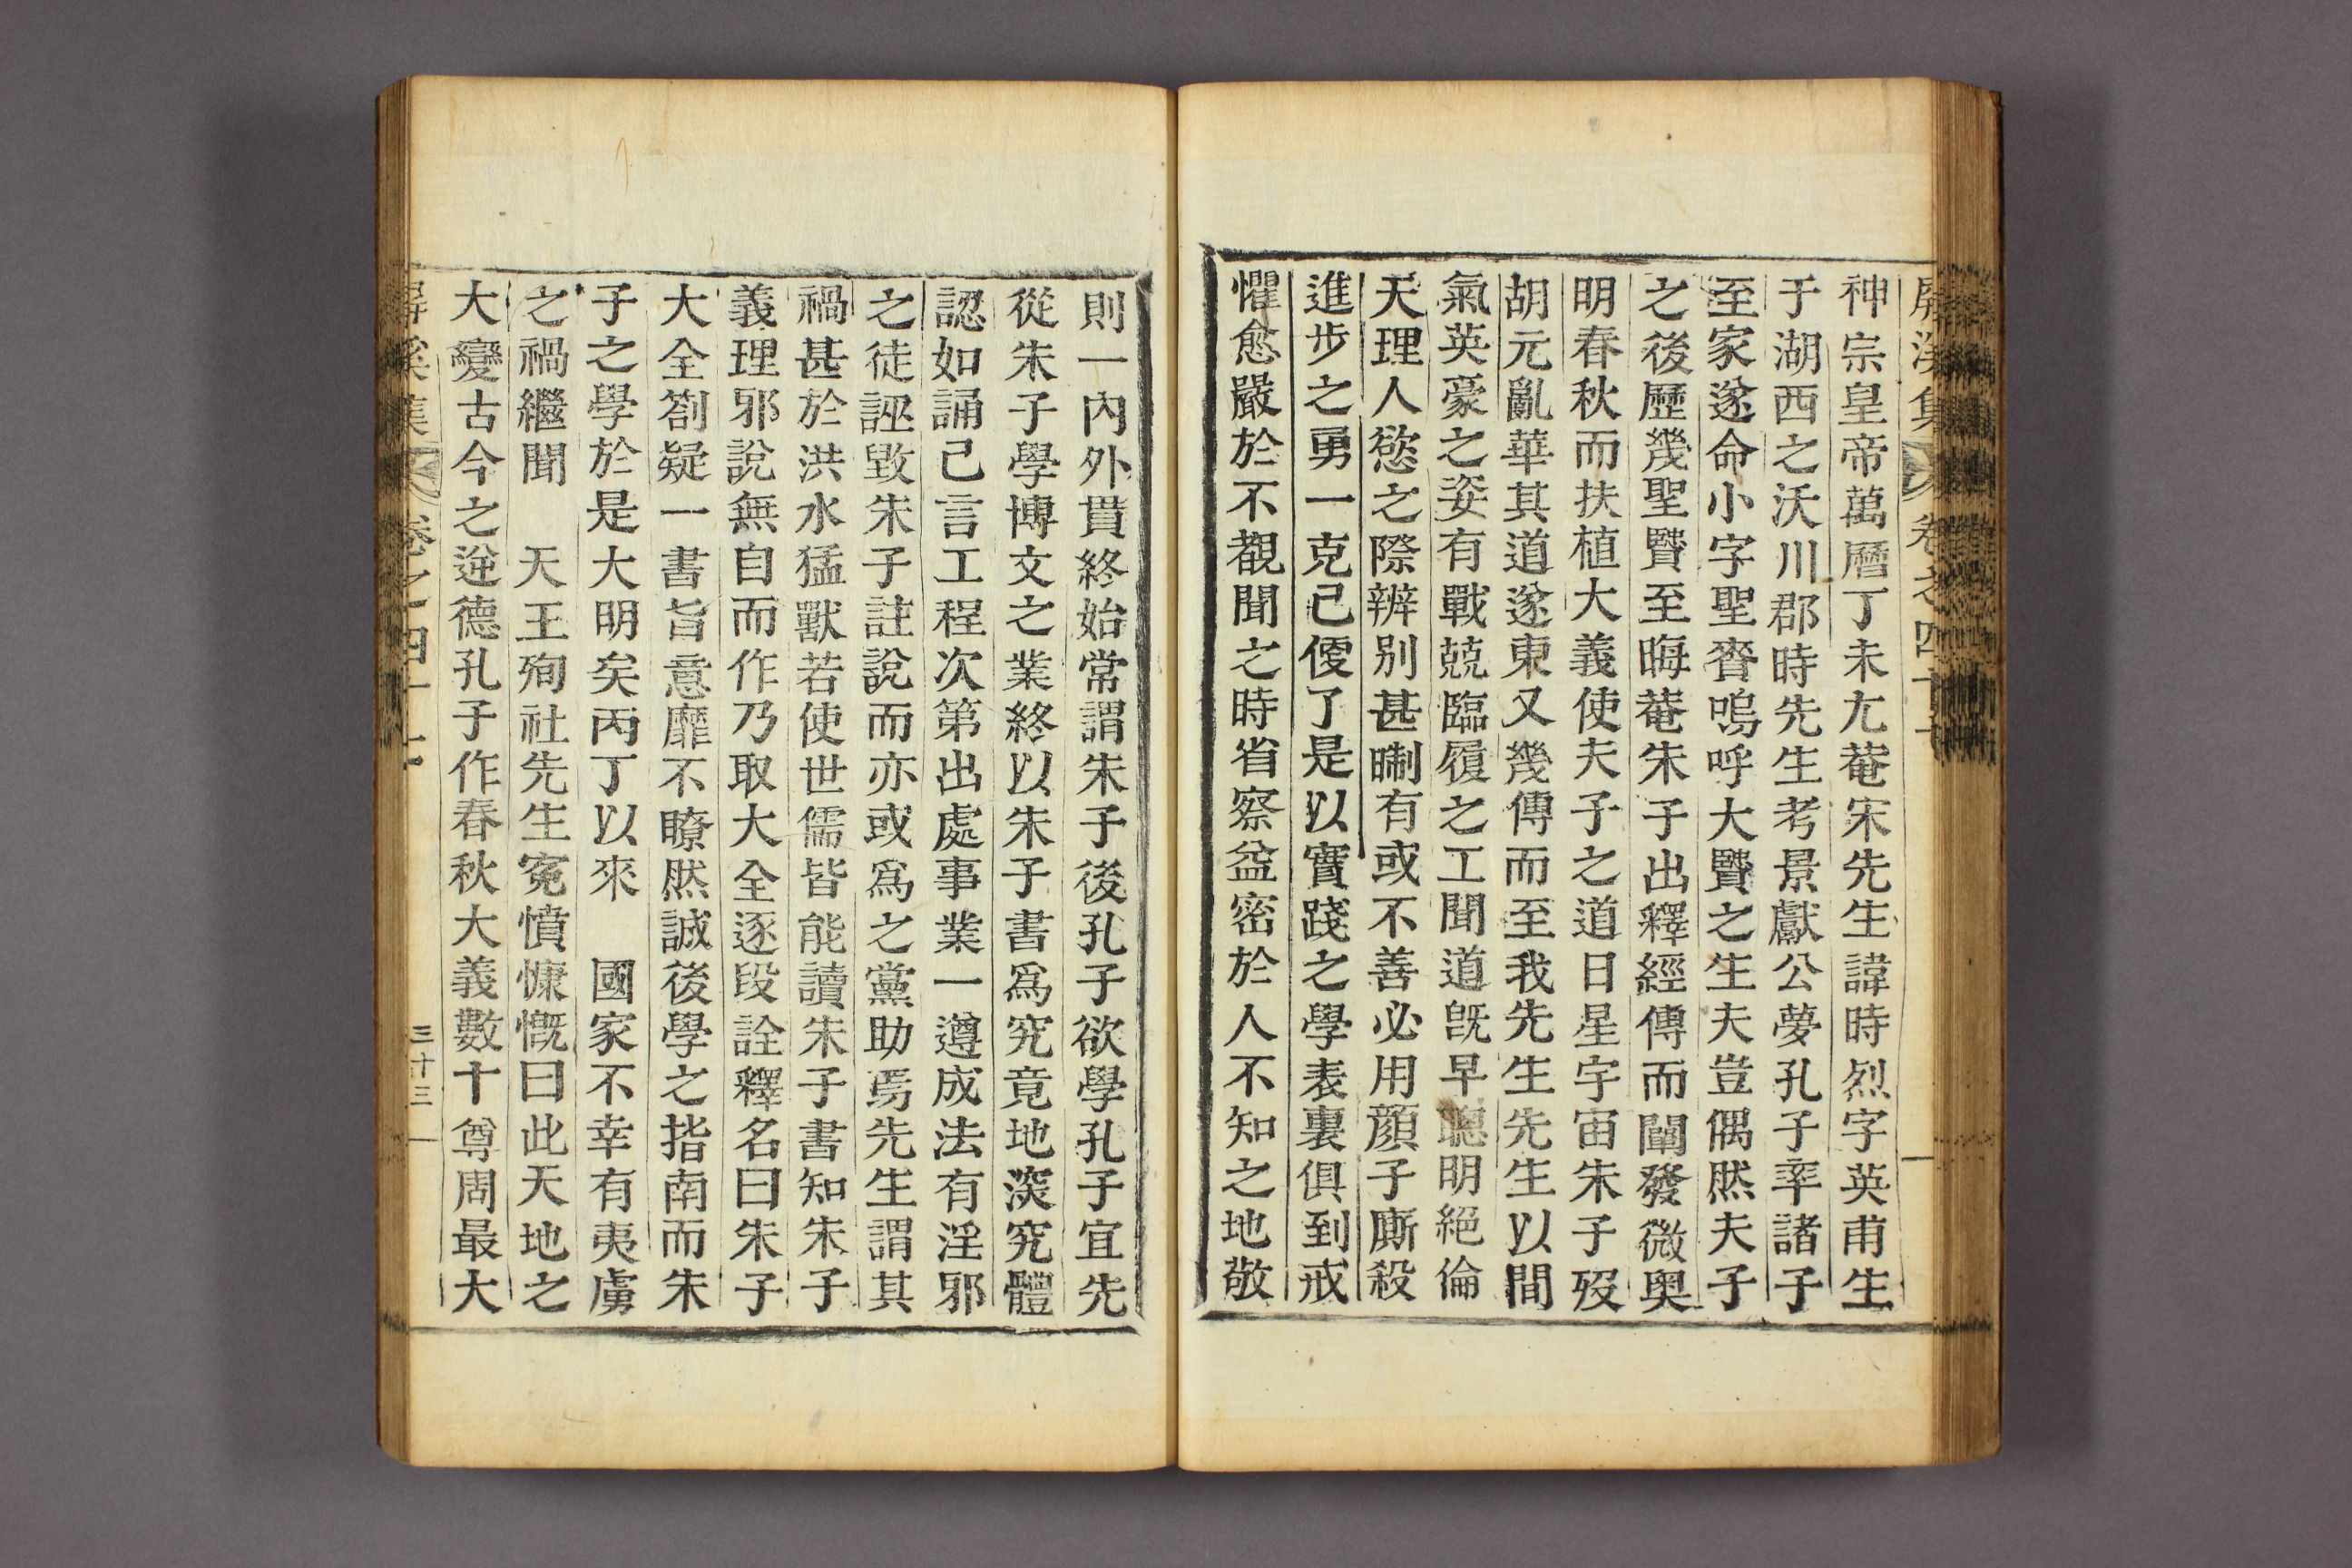 屛溪集 卷之四十七
神宗皇帝萬曆丁未尤菴宋先生諱時烈字英甫生
于湖西之沃川郡時先生考景獻公夢孔子率諸子
至家遂命小字聖賚嗚呼大賢之生夫豈偶然夫子
之後歷幾聖賢至晦菴朱子出釋經傳而闡發微奧
明春秋而扶植大義使夫子之道日星宇宙朱子歿
胡元亂華其道遂東又幾傳而至我先生先生以間
氣英豪之姿有戰兢臨履之工聞道旣早聰明絕倫
天理人慾之際辨別甚晣有或不善必用顔子廝殺
進步之勇一克己便了是以實踐之學表裏俱到戒
懼愈嚴於不覩聞之時省察益密於人不知之地敬
則一內外貫終始常謂朱子後孔子欲學孔子宜先
從朱子學博文之業終以朱子書爲究竟地深究體
認如誦己言工程次第出處事業一遵成法有淫邪
之徒誣毀朱子註說而亦或爲之黨助焉先生謂其
禍甚於洪水猛獸若使世儒皆能讀朱子書知朱子
義理邪說無自而作乃取大全逐段詮釋名曰朱子
大全箚疑一書旨意靡不瞭然誠後學之指南而朱
子之學於是大明矣丙丁以來 國家不幸有夷虜
之禍繼聞 天王殉社先生寃憤慷慨曰此天地之
大變古今之逆德孔子作春秋大義數十尊周最大
屛溪集 卷之四十七 三十三